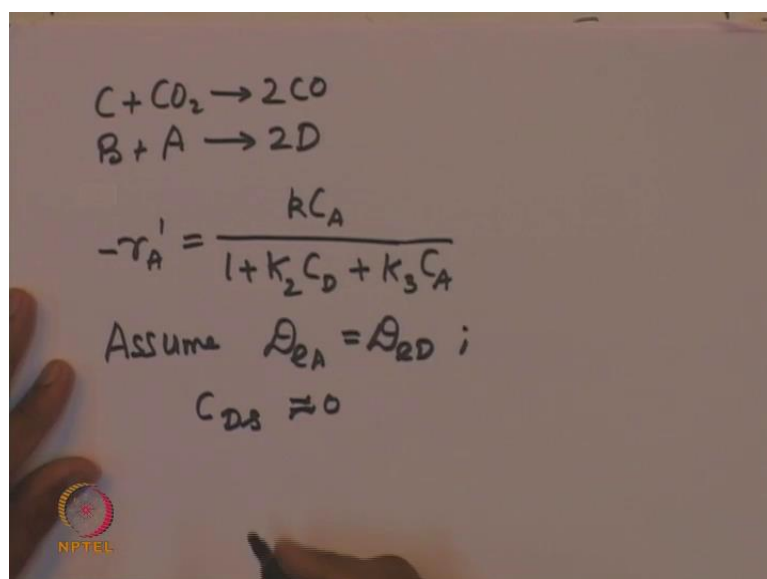 C + CO₂ → 2CO
B + A → 2D
-r_A' = kC_A / (1 + K₂C_D + K₃C_A)
Assume D_eA = D_eD ;
C_Ds ≈ 0
NPTEL